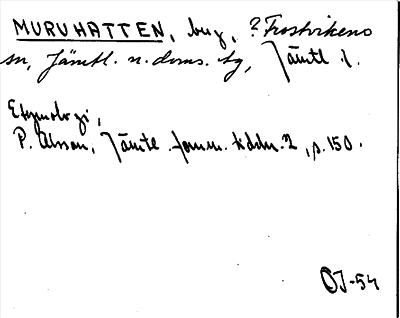 MURUHATTEN, bug, ? Frostvikens
sn, Jämtl. n. doms. tg, Jämtl. l.
Etymologi,
P. Olsson, Jämtl. fornm. tidskr. 2, s. 150.
OJ-54